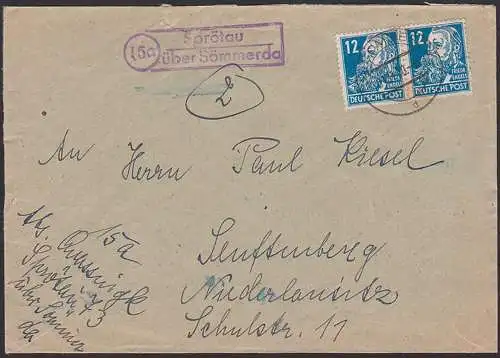 15a
Sprötau
über Sömmerda
12
FRIEDR.
ENGELS
DEUTSCHE POST
12
FRIEDR.
ENGELS
DEUTSCHE POST
An Herrn Paul Kiesel
Senftenberg
Niederlausitz
Schulstr. 11
15a
Abs.
Sprötau 43
über Sömmer
da